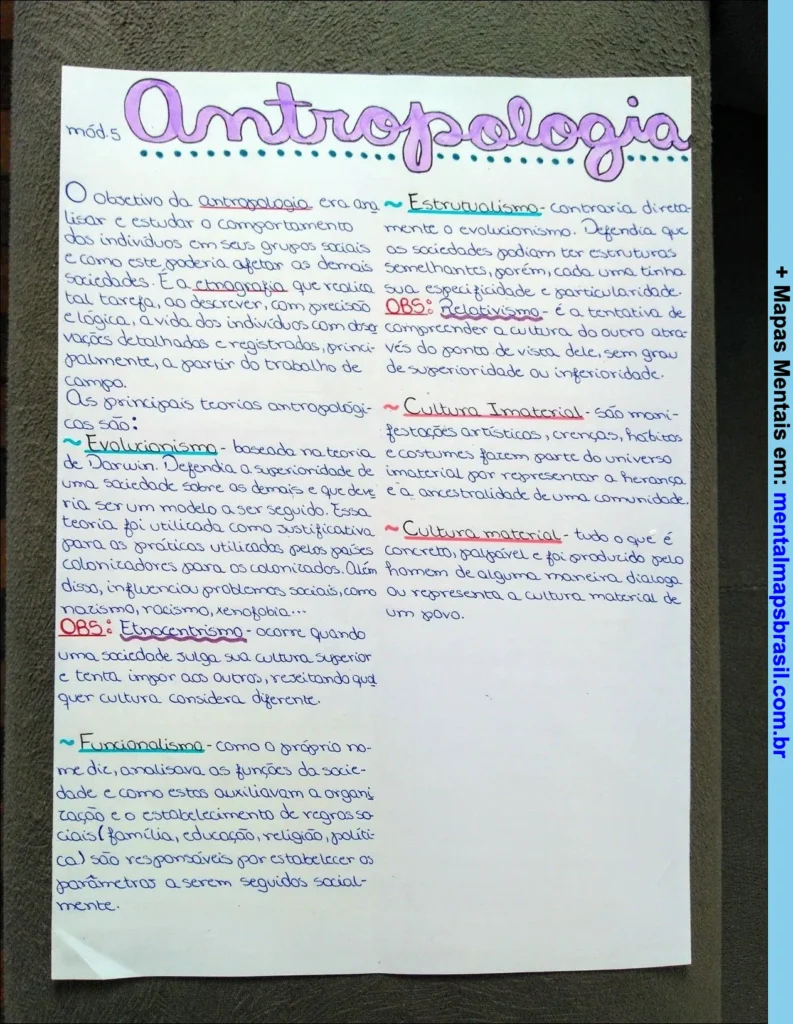 mód.5 Antropologia
O objetivo da antropologia era ana
lisar e estudar o comportamento
dos indivíduos em seus grupos sociais
e como este poderia afetar os demais
sociedades. É a etnografia que realiza
tal tarefa, ao descrever, com precisão
e lógica, a vida dos indivíduos com obser
vações detalhadas e registradas, princi-
palmente, a partir do trabalho de
campo.
As principais teorias antropológi-
cas são:
~ Evolucionismo - baseada na teoria
de Darwin. Defendia a superioridade de
uma sociedade sobre as demais e que deve
ria ser um modelo a ser seguido. Essa
teoria foi utilizada como justificativa
para as práticas utilizadas pelos países
colonizadores para os colonizados. Além
disso, influenciou problemas sociais, como
nazismo, racismo, xenofobia...
OBS: Etnocentrismo - ocorre quando
uma sociedade julga sua cultura superior
e tenta impor aos outros, rejeitando qual
quer cultura considera diferente.
~ Funcionalismo - como o próprio no-
me diz, analisava as funções da socie-
dade e como estas auxiliavam a organi
zação e o estabelecimento de regras so
ciais (família, educação, religião, políti-
ca) são responsáveis por estabelecer os
parâmetros a serem seguidos social-
mente.
~ Estrutualismo - contraria direta-
mente o evolucionismo. Defendia que
as sociedades podiam ter estruturas
semelhantes, porém, cada uma tinha
sua especificidade e particularidade.
OBS: Relativismo - é a tentativa de
compreender a cultura do outro atra-
vés do ponto de vista dele, sem grau
de superioridade ou inferioridade.
~ Cultura Imaterial - são mani-
festações artísticas, crenças, hábitos
e costumes fazem parte do universo
imaterial por representar a herança
e a ancestralidade de uma comunidade.
~ Cultura material - tudo o que é
concreto, palpável e foi produzido pelo
homem de alguma maneira dialoga
ou representa a cultura material de
um povo.
+ Mapas Mentais em: mentalmapsbrasil.com.br